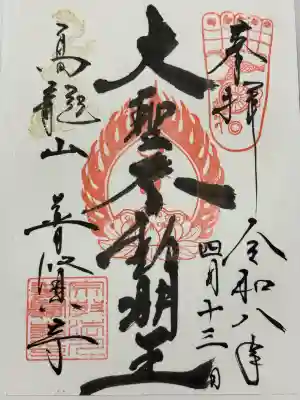 奉拝
令和八年
四月十三日
大聖不動明王
高龍山 普賢寺